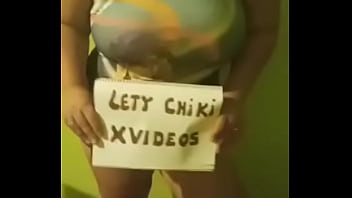 LETY CHIKI
XVIDEOS